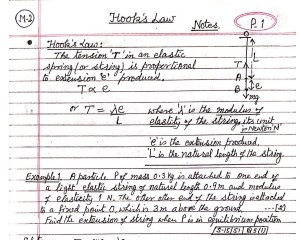 M-2
Hook's Law
Notes.
P.1
Hook's Law:
The tension 'T' in an elastic
spring (or string) is proportional
to extension 'e' produced,
T ∝ e
or T = λe/L where 'λ' is the modulus of
elastity of the string, its unit
is Newton 'N'
'e' is the extension produced.
'L' is the natural length of the string.
L
T
A
e
B
mg
Example 1. A particle P of mass 0.3 kg is attached to one end of
a light elastic string of natural length 0.9m and modulus
of elasticity 1 N. The other end of the string is attached
to a fixed point O, which is 3m above the ground.
Find the extension of string when P is in equilibrium position